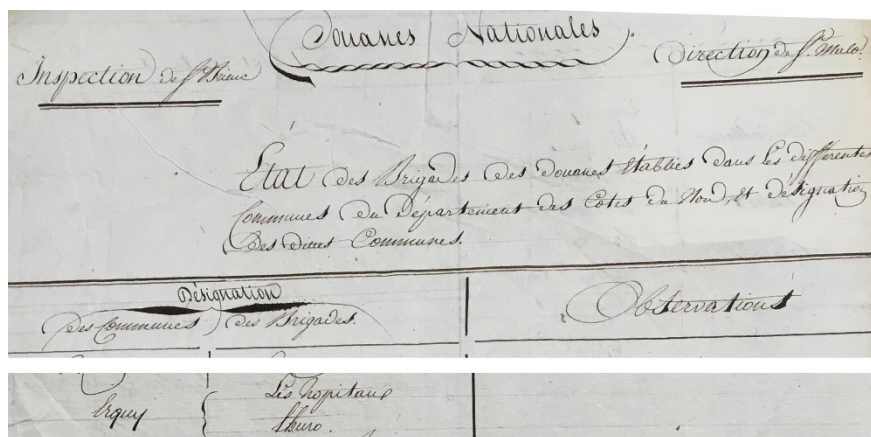 Douanes Nationales
Inspection de St Brieuc
Direction de St. Malo.
État des Brigades des douanes établies dans les différentes
Communes du Département des Côtes du Nord, et désignation
des dittes Communes.
Désignation
des Communes
des Brigades.
Observations
Erquy
Les hopitaux